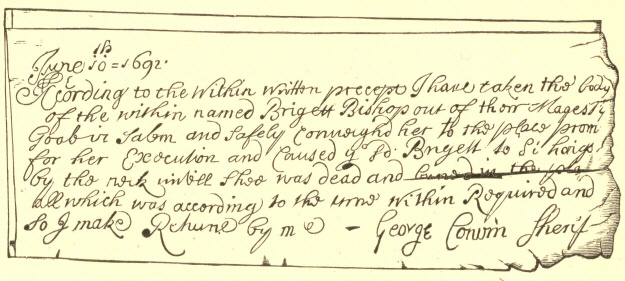 June 10th = 1692.
Acording to the Within Written precept I have taken the body
of the within named Brigett Bishop out of their Magesty
Goob in Salem and Safely Conveighd her to the place prom
for her Execution and Caused ye sd. Brigett to be hangd
by the neck untill Shee was dead and buried in the pla
all which was according to the time within Required and
So I make Returne by me - George Corwin Sherif